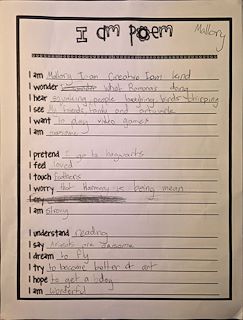 I am poem
Mallory
I am Mallory I am Creative I am kind
I wonder what Ramona's doing
I hear people laughing birds chirping
I see My friends, family and
I want To play video games
I am awesome
I pretend I go to hogwarts
I feel loved
I touch feathers
I worry that Harmony is being mean
I am strong
I understand reading
I say Artists are awesome
I dream to fly
I try to become better at art
I hope to get a bdog
I am wonderful